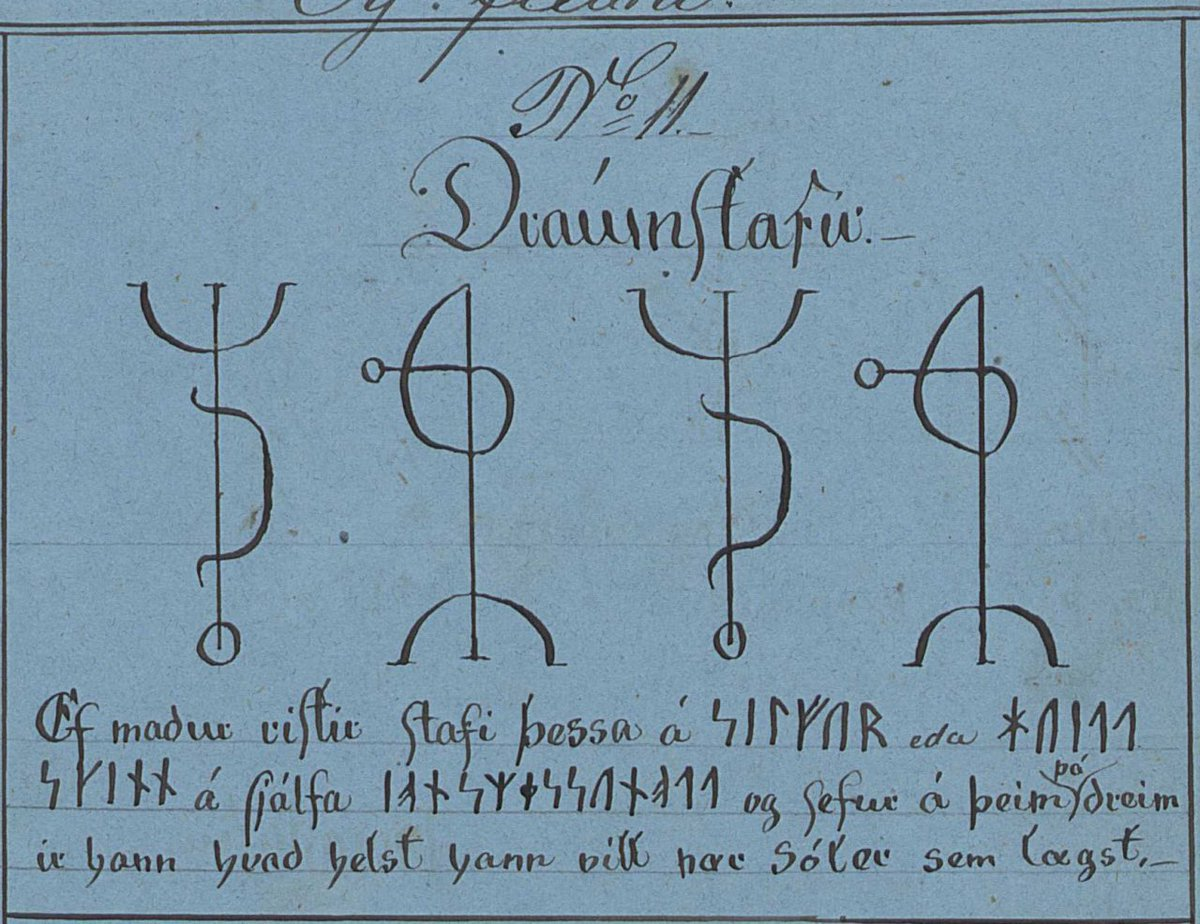 No 11.–
Draúmstafir.–
Ef madur ristir stafi þessa á ᛋᛁᛚᚠᚢᚱ eda ᚼᚢᛁᛐᛐ
ᛋᚴᛁᚾᚾ á sjálfa ᛁᚮᚾᛋᛘᛂᛋᛋᚢᚾᛆᛐᛐ og sefur á þeim þá dreim
ir hann hvad helst hann vill nær sóler sem lægst.–